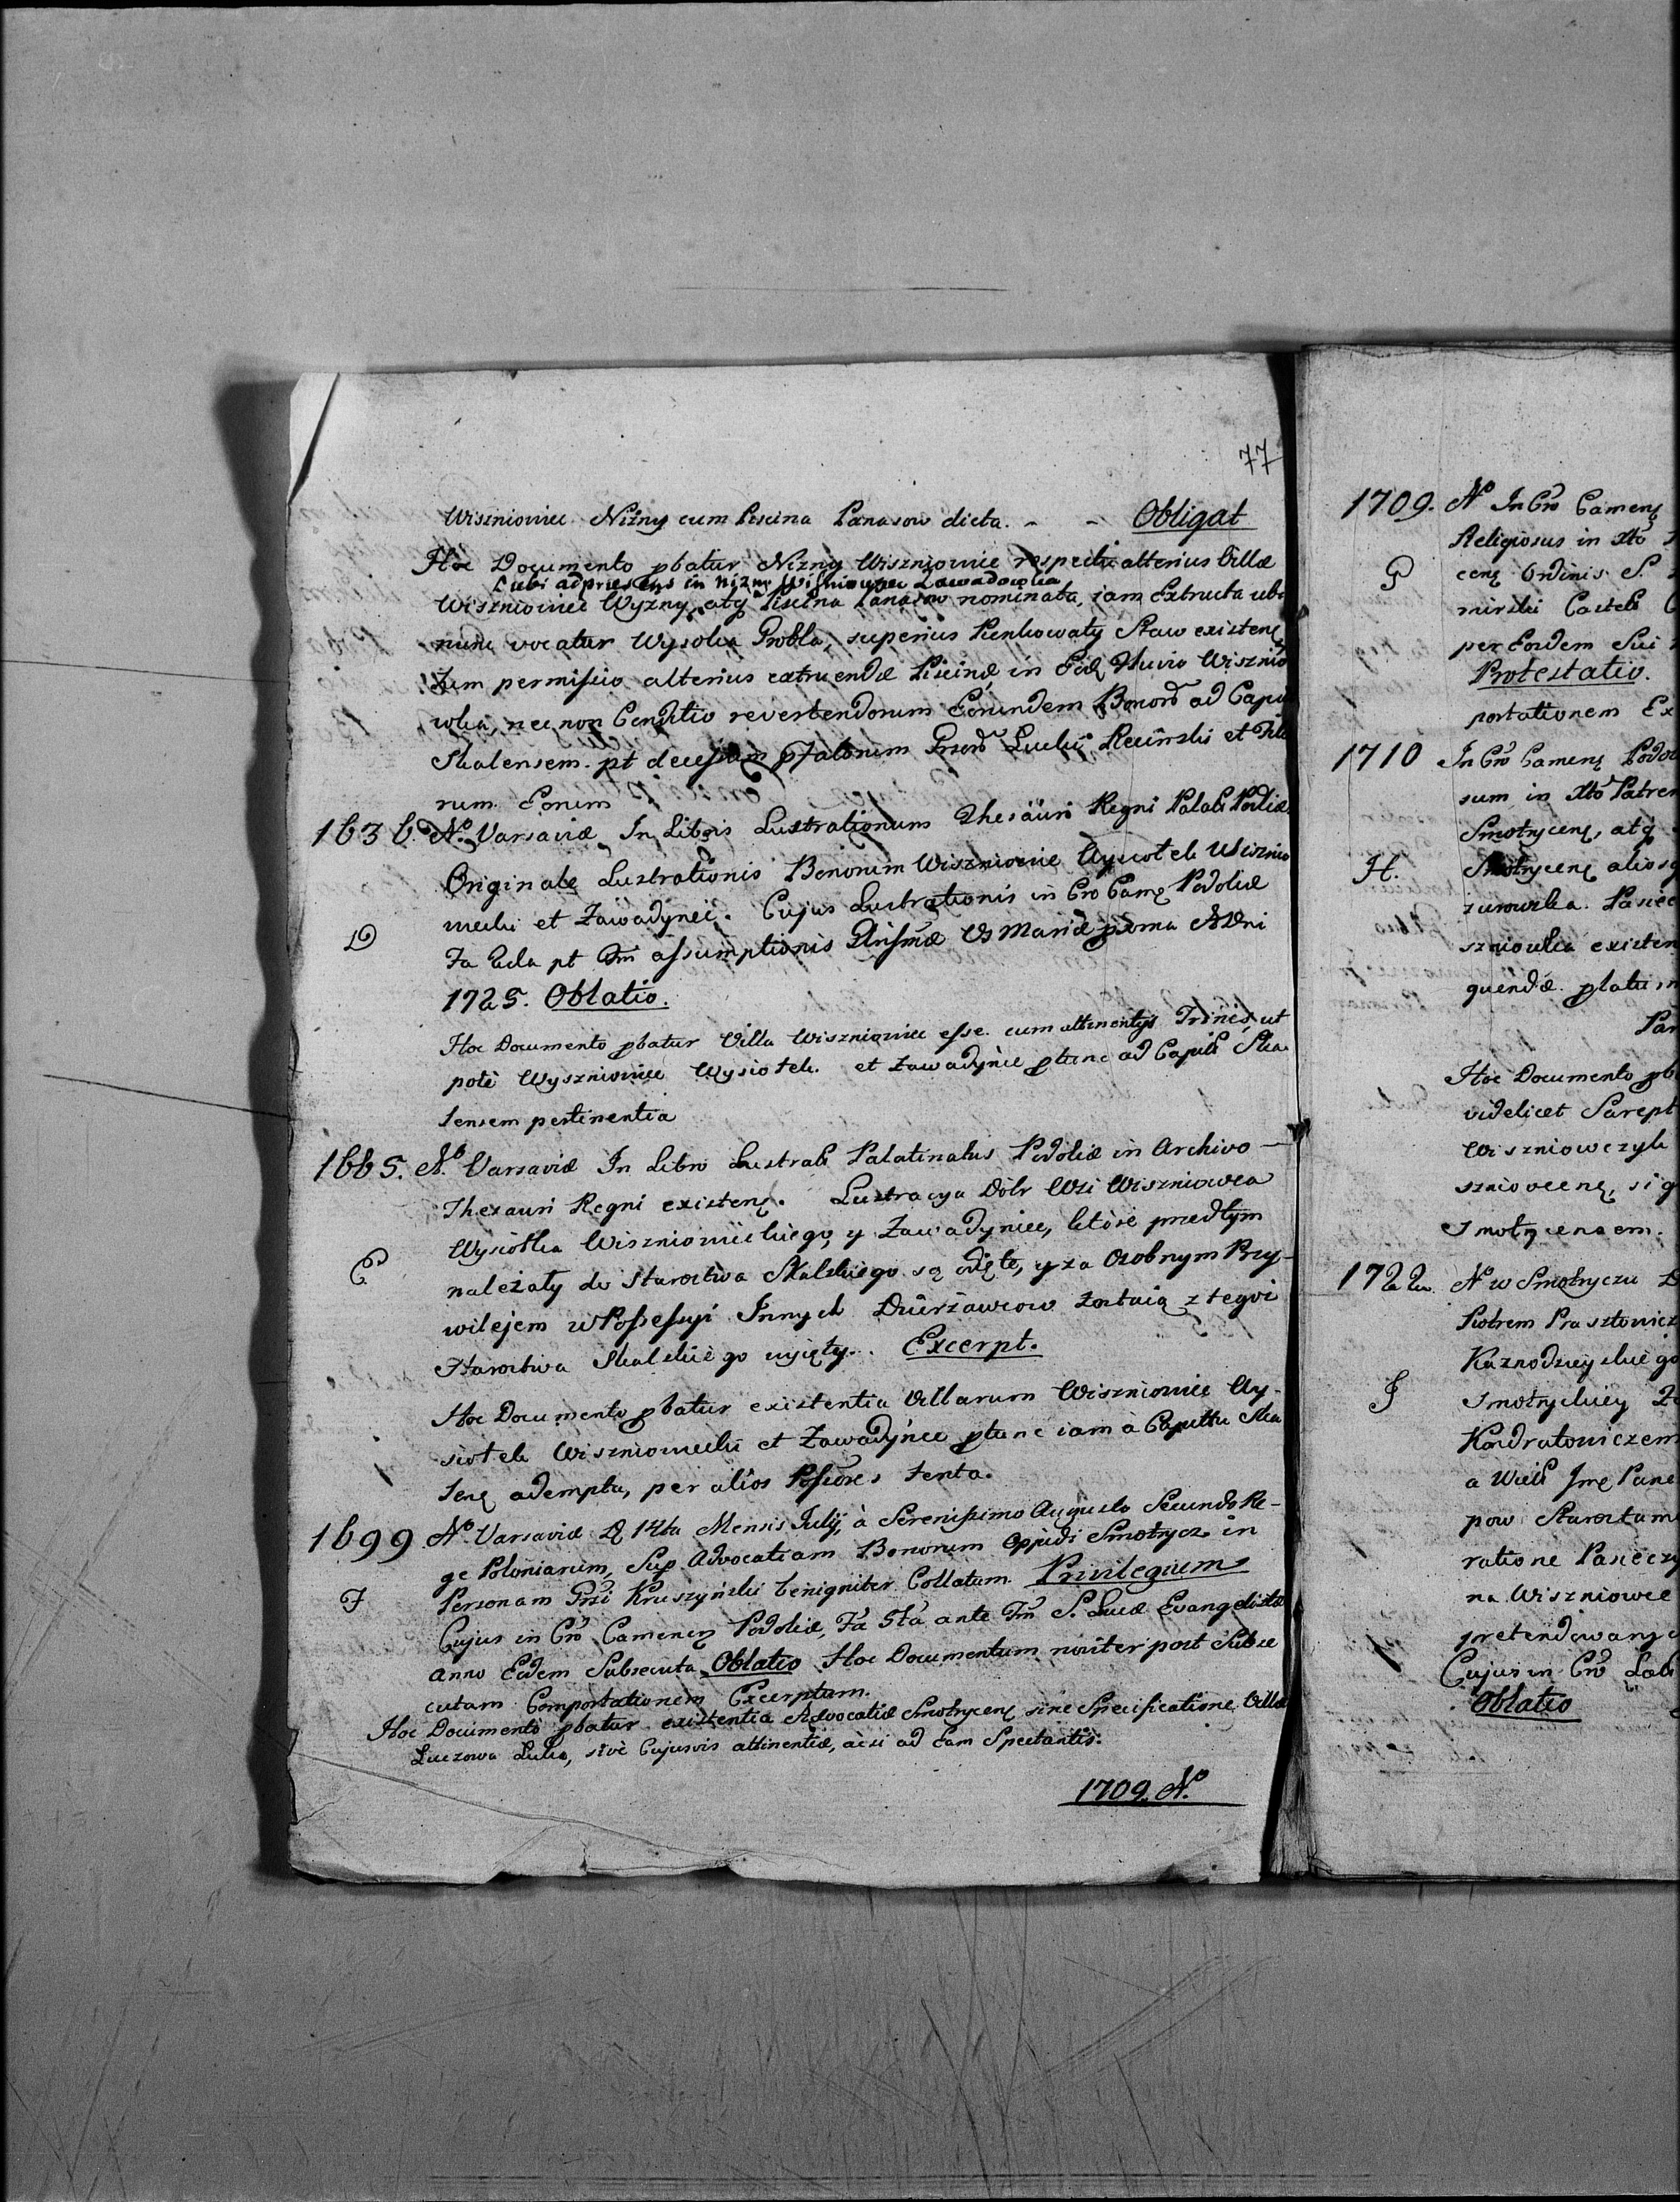 77
Wiszniowiec Niżny cum Piscina Panasow dicta. - - Obligat
Hoc Documento pbatur Niżny Wiszniowiec respectu alterius Villæ
Wiszniowiec Wyzny, atq Piscina Panasow nominata, iam Extructa ubi
nunc vocatur Wysoka Grobla, superius Pienkowaty Staw existen
Tum permissio alterius extruendæ Piscinæ in Eod Fluvio Wisznio
wka, nec non Conditio revertendorum Eorundem Bonor ad Caput
Skalensem pt decessum
rum Eorum
1636. No. Varsaviæ In Libris Lustrationum Thesauri Regni Palat Podliæ
Originale Lustrationis Bonorum Wiszniowiec Wysiotek Wisznio
wecki et Zawadyńce. Cujus Lustrationis in Cro Came Podoliæ
D
Fa 2da pt Fm assumptionis Mariæ proma A Dni
1725. Oblatio.
Hoc Documento pbatur Villa Wiszniowiec esse cum attinentys Trinis, ut
potè Wyszniowiec Wysiotek et Zawadyńce ptunc ad Caput Ska
lensem pertinentia
1665. No. Varsaviæ In Libro Lustrali Palatinatus Podoliæ in Archivo
Thesauri Regni existen. Lustracya Dobr Wsi Wiszniowca
Wysiotka Wiszniowieckiego, y Zawadyniec, ktòre przedtym
E
należaty do Starostwa Skalskiego są odięte, y za Osobnym Przy-
wilejem w Possessyi Innych Dzierżawcow zostaią z tegoż
Starostwa Skalskiego wyięty. Excerpt.
Hoc Documento pbatur existentia Villarum Wiszniowiec Wy-
siotek Wiszniowiecki et Zawadyńce ptunc iam à Capite Ska
len adempta, per alios Possores tenta.
1699 No. Varsaviæ D 14ta Mensis Julij, à Serenissimo Augusto Secundo Re-
ge Poloniarum, Sup Advocatiam Bonorum Oppidi Smotrycz in
F
Personam Grsi Kruszyński benigniter Collatum Privilegium
Cujus in Cro Camenen Podoliæ, Fa 5ta ante Fm S. Lucæ Evangelistæ
anno Eodem Subsecuta Oblatio Hoc Documentum noviter post Subse
cutam Comportationem Excerptum.
Hoc Documentò pbatur existentia Advocatiæ Smotrycen sine Specificatione Villæ
Luczowa Luka, sivè Cujusvis attinentiæ, acsi ad Eam Spectantis.
1709. No.
1709. No In Cro Camen
Religiosus in Xto
G
cen Ordinis S.
mirski Castel
per Eosdem Sui
Protestatio.
portationem Ex
1710 In Cro Camen Podol
sum in Xto Patrem
Smotrycen, atq
H.
Smotrycen aliosq
zurowka Pasiec
szniowka existen
quendæ platium
Par
Hoc Documento pb
videlicet Sarept
Wiszniowczyk
szniowcen, sig
Smotrycensem.
1722 No w Smotryczu D
Piotrem Prasztowicz
Kaznodzieyskiego
J
Smotryckiey Za
Kondratowiczem
a Wiel Jme Pane
pow Starostam
ratione Pasieczy
na Wiszniowce
pretendowany
Cujus in Cro
Oblatio